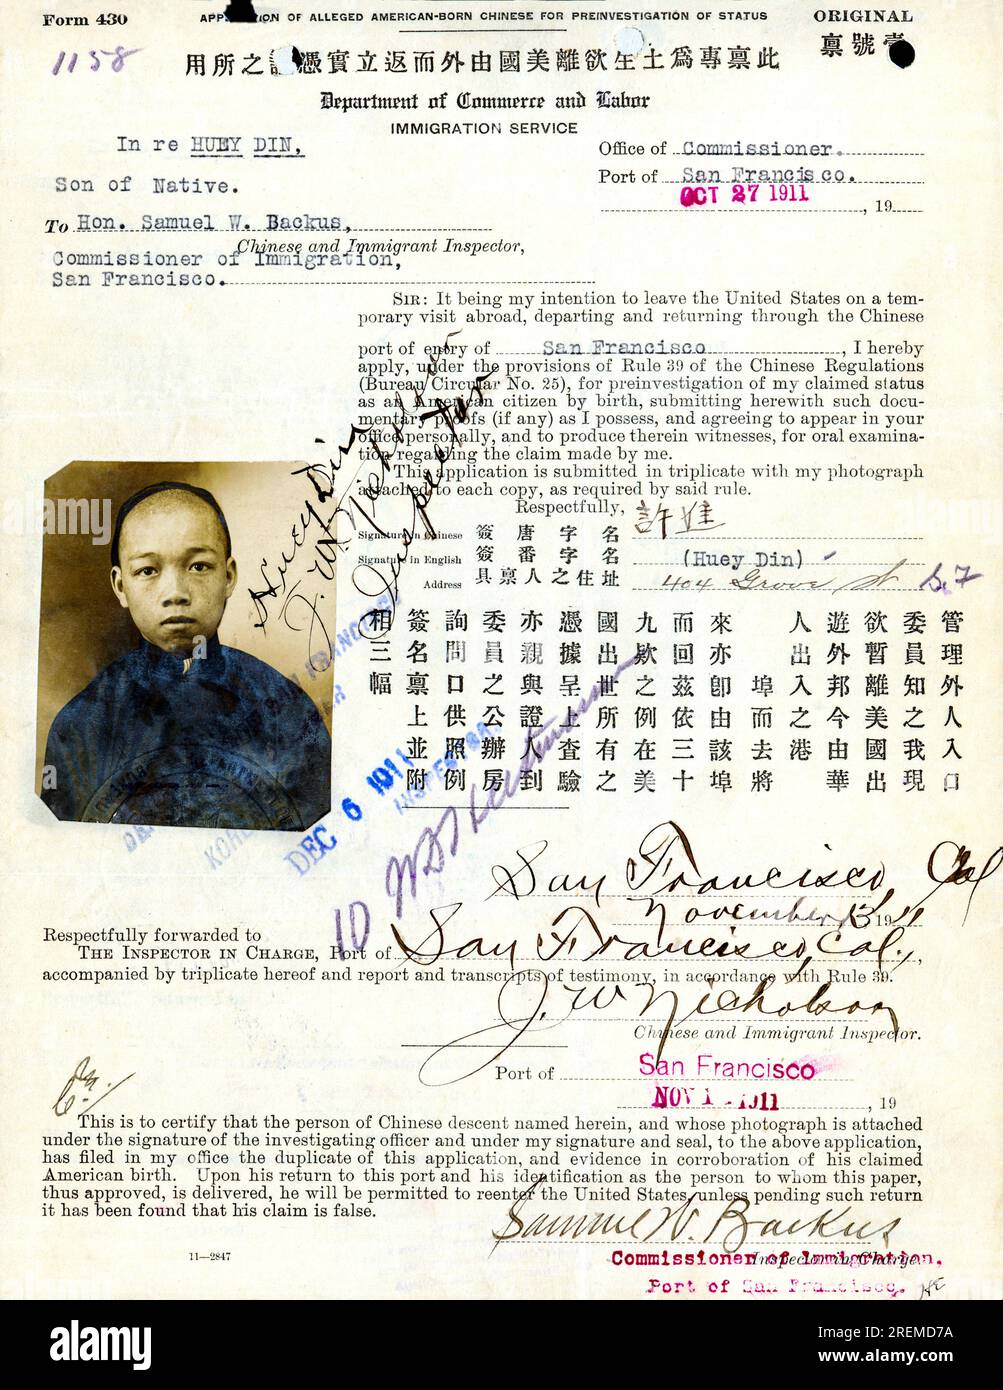 Form 430
APPLICATION OF ALLEGED AMERICAN-BORN CHINESE FOR PREINVESTIGATION OF STATUS
ORIGINAL
1158
此禀專爲土生欲離美國由外而返立實憑 之所用
壹號禀
Department of Commerce and Labor
IMMIGRATION SERVICE
In re HUEY DIN,
Son of Native.
Office of Commissioner.
Port of San Francisco.
OCT 27 1911, 19
To Hon. Samuel W. Backus,
Chinese and Immigrant Inspector,
Commissioner of Immigration,
San Francisco.
SIR: It being my intention to leave the United States on a tem-
porary visit abroad, departing and returning through the Chinese
port of entry of San Francisco, I hereby
apply, under the provisions of Rule 39 of the Chinese Regulations
(Bureau Circular No. 25), for preinvestigation of my claimed status
as an American citizen by birth, submitting herewith such docu-
mentary proofs (if any) as I possess, and agreeing to appear in your
office personally, and to produce therein witnesses, for oral examina-
tion regarding the claim made by me.
This application is submitted in triplicate with my photograph
attached to each copy, as required by said rule.
Respectfully,
Signature in Chinese 簽唐字名 許進
Signature in English 簽番字名 (Huey Din)
Address 具禀人之住址 404 Grove St S.F
Huey Din
J. W. Nicholson
Inspector
管理外人入口
委員知之我現
欲暫離美國出
遊外邦今由華
人出入之港
埠而去將
來亦卽由該埠
而回茲依三十
九欵之例在美
國出世所有之
憑據呈上查驗
亦親與證人到
委員之公辦房
詢問口供照例
簽名禀上並附
相三幅
DEC 6 1911
10
San Francisco, Cal
November 13 1911
Respectfully forwarded to
THE INSPECTOR IN CHARGE, Port of San Francisco, Cal.,
accompanied by triplicate hereof and report and transcripts of testimony, in accordance with Rule 39.
J. W. Nicholson
Chinese and Immigrant Inspector.
Port of San Francisco
NOV 1 1911, 19
This is to certify that the person of Chinese descent named herein, and whose photograph is attached
under the signature of the investigating officer and under my signature and seal, to the above application,
has filed in my office the duplicate of this application, and evidence in corroboration of his claimed
American birth. Upon his return to this port and his identification as the person to whom this paper,
thus approved, is delivered, he will be permitted to reenter the United States, unless pending such return
it has been found that his claim is false.
Samuel W. Backus
11—2847
Commissioner of Immigration,
Inspector in Charge.
Port of San Francisco.
alamy
Image ID: 2REMD7A
www.alamy.com